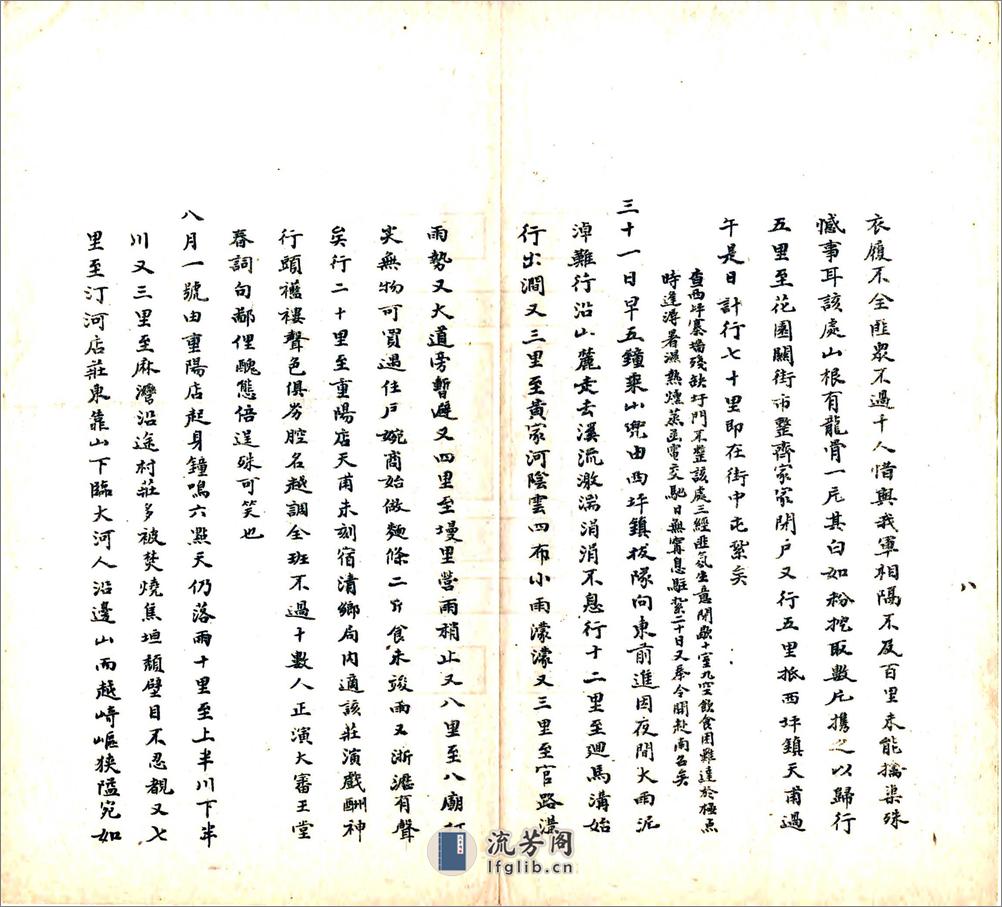 八
衣履不全匪眾不過千人惜與我軍相隔不及百里未能擒渠殊
憾事耳該處山根有龍骨一片其白如粉挖取數片攜之以歸行
五里至花園關街市整齊家家閉戶又行五里抵西坪鎮天甫過
午是日計行七十里即在街中屯紮矣
查西坪寨墻殘缺圩門不整該處三經匪氛生意閉歇十室九空飲食困難達於極点
時逢溽暑濕熱燻蒸蚤電交馳日無寗息駐紮二十日又奉令開赴南召矣
三十一日早五鐘乘山兜由西坪鎮拔隊向東前進因夜間大雨泥
淖難行沿山麓走去溪流激湍涓涓不息行十二里至迴馬溝始
行出澗又三里至黃家河陰雲四布小雨濛濛又三里至官路溝
雨勢又大道旁暫避又四里至堘里營雨稍止又八里至八廟打
尖無物可買遇住戶婉商始做麵條二斤食未竣雨又淅瀝有聲
矣行二十里至重陽店天甫未刻宿清鄉局內適該莊演戲酬神
行頭襤褸聲色俱劣腔名越調全班不過十數人正演大審王堂
春詞句鄙俚醜態倍逞殊可笑也
八月一號由重陽店起身鐘鳴六點天仍落雨十里至上半川下半
川又三里至麻灣沿途村莊多被焚燒焦垣頹壁目不忍覩又七
里至汀河店莊東靠山下臨大河人沿邊山而越崎嶇狹隘宛如
流芳阁
lfglib.cn